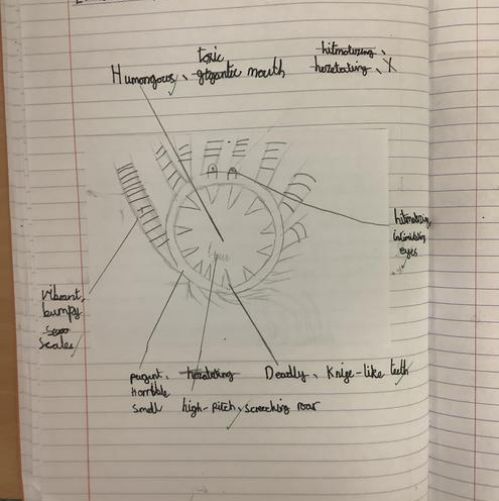 toxic
Humongous, gigantic mouth
hitmotising,
X
hitmotising
intimidating
eyes
vibrant,
bumpy
scales
pugent,
horrible
smell
high-pitch, screeching roar
Deadly, Knife-like teeth